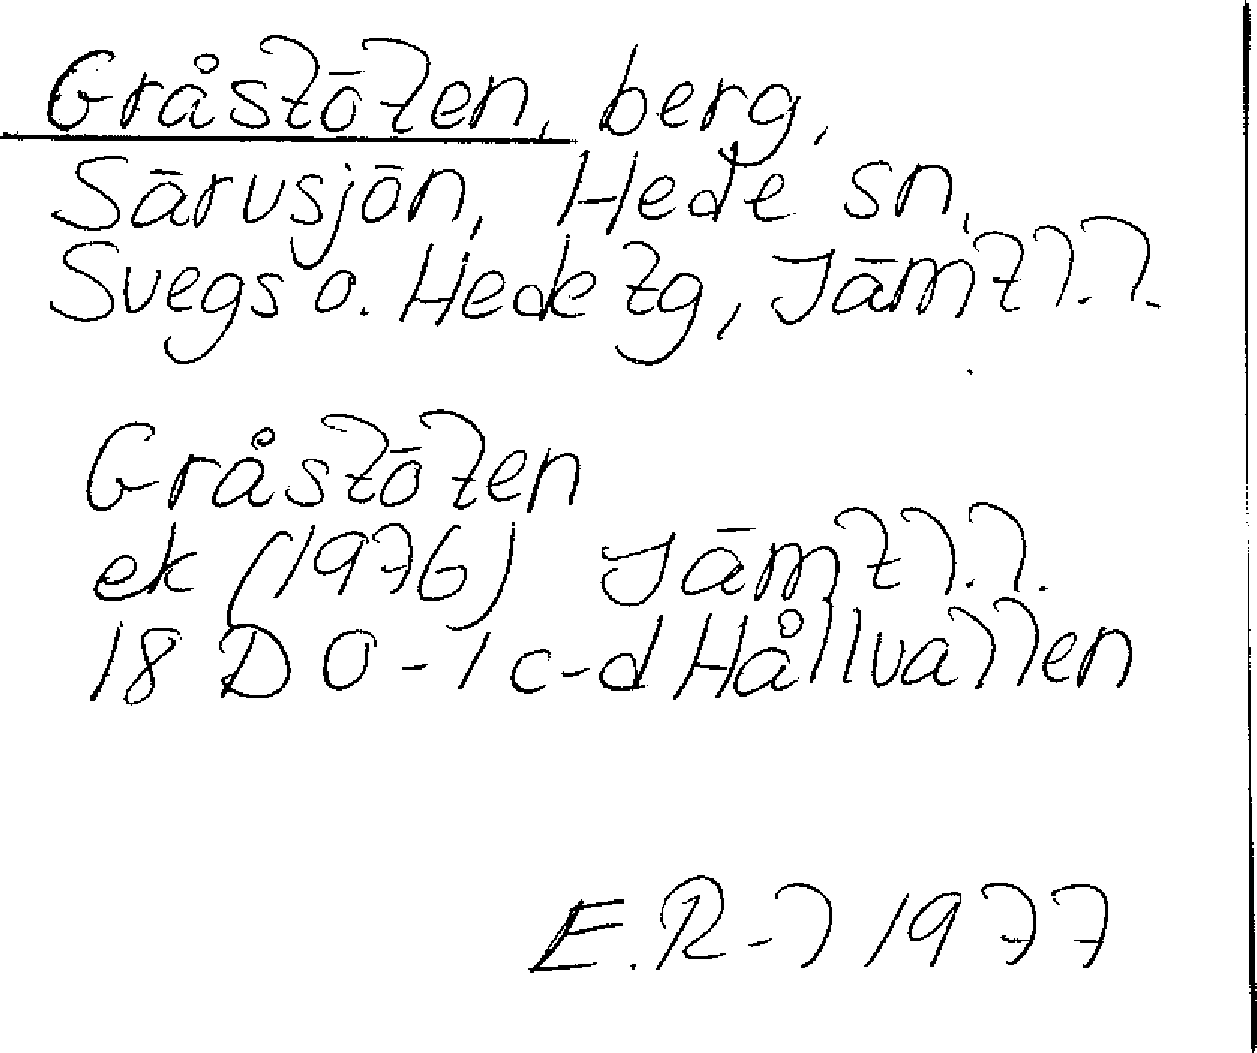 Gråstöten, berg,
Särvsjön, Hede sn,
Svegs o. Hede tg, Jämtl.l.
Gråstöten
ek (1976) Jämtl.l.
18 D 0-1 c-d Hållvallen
E.R-l 1977